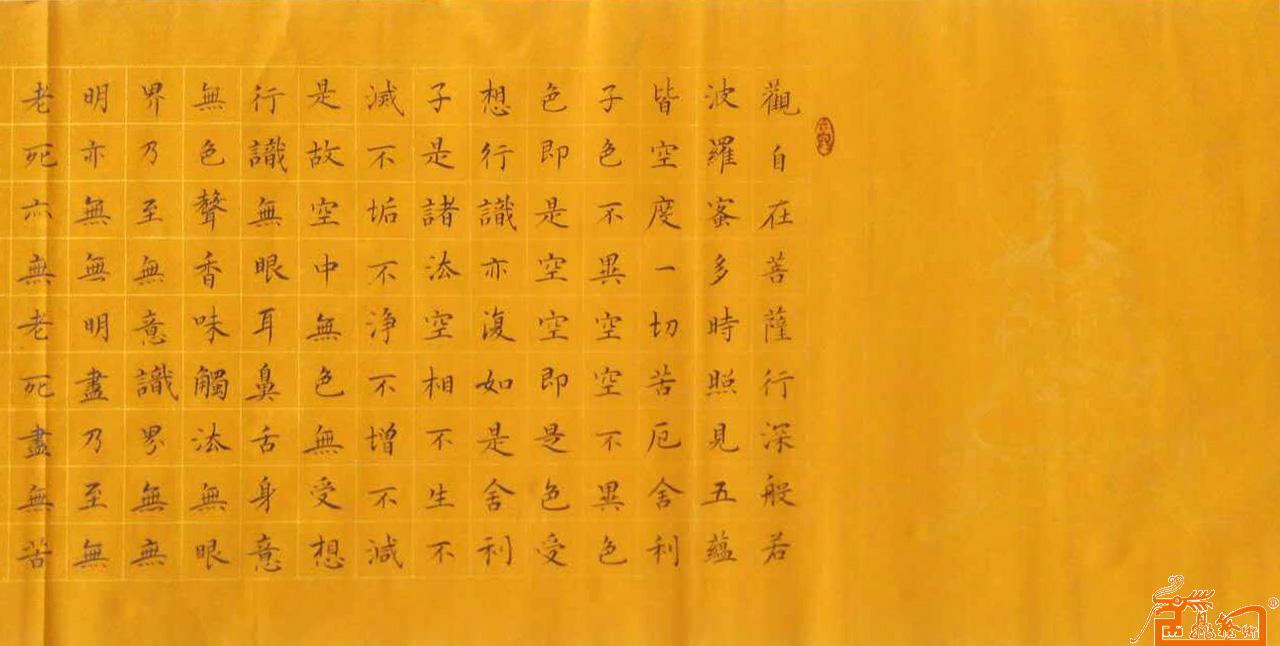 觀自在菩薩行深般若
波羅蜜多時照見五蘊
皆空度一切苦厄舍利
子色不異空空不異色
色即是空空即是色受
想行識亦復如是舍利
子是諸法空相不生不
滅不垢不淨不增不減
是故空中無色無受想
行識無眼耳鼻舌身意
無色聲香味觸法無眼
界乃至無意識界無無
明亦無無明盡乃至無
老死亦無老死盡無苦